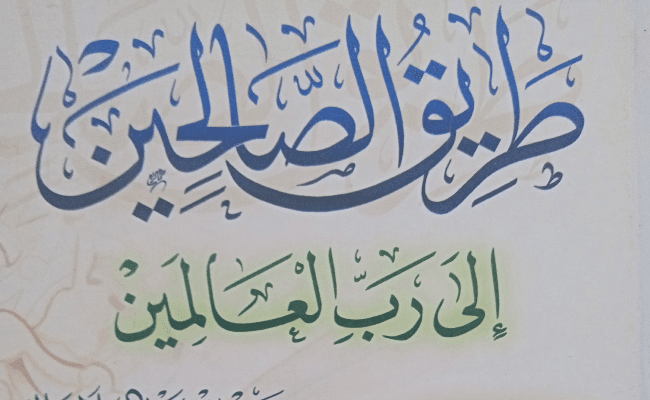 طَرِيقُ الصَّالِحِينَ
إِلَى رَبِّ الْعَالَمِينَ